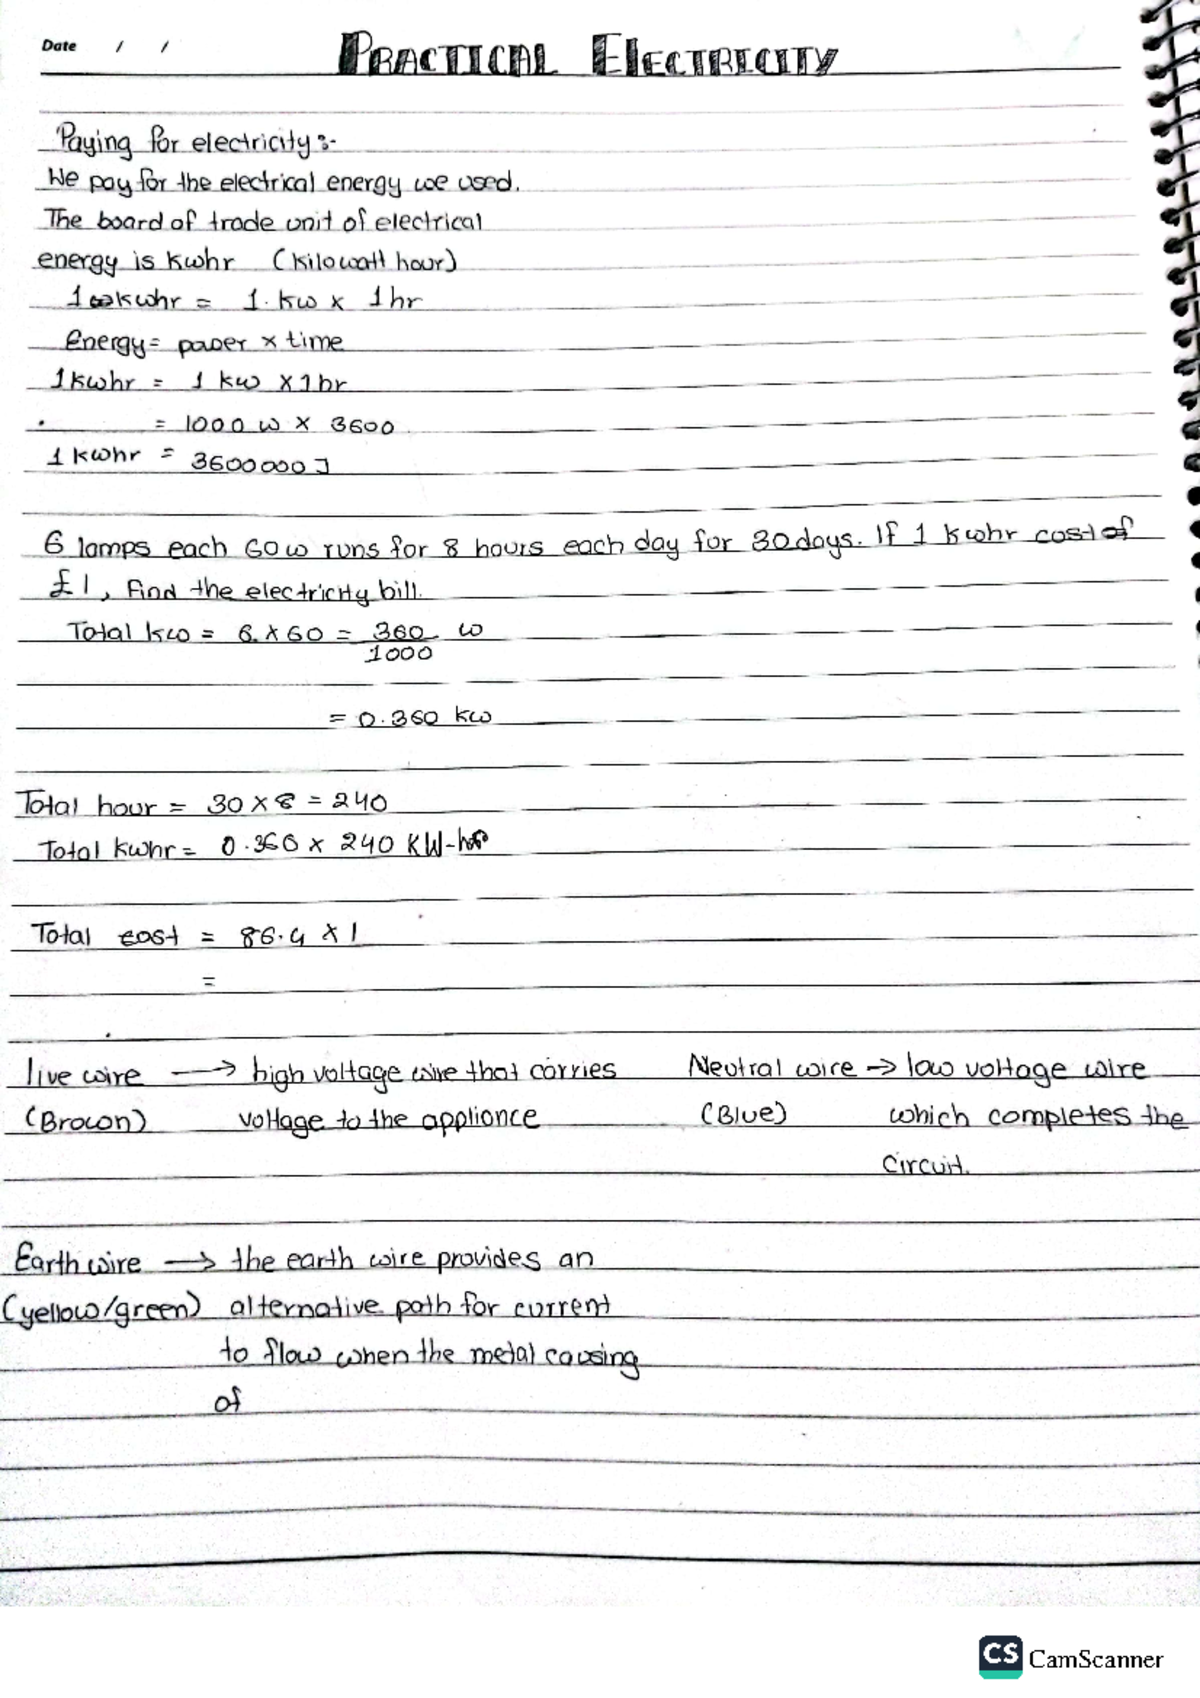 Date / /
PRACTICAL ElECTRICITY
Paying for electricity:-
We pay for the electrical energy we used.
The board of trade unit of electrical
energy is kwhr (kilowatt hour)
1 kwhr = 1. kw x 1 hr
Energy = power x time
1kwhr = 1 kw x 1hr
= 1000 w x 3600
1 kwhr = 3600000 J
6 lamps each 60w runs for 8 hours each day for 30days. If 1 kwhr cost of
£1, find the electricity bill.
Total kw = 6 x 60 = 360 w
1000
= 0.360 kw
Total hour = 30 x 8 = 240
Total kwhr = 0.360 x 240 KW-hr
Total cost = 86.4 x 1
=
live wire → high voltage wire that carries
(Brown) voltage to the appliance
Neutral wire → low voltage wire
(Blue) which completes the
circuit.
Earth wire → the earth wire provides an
(yellow/green) alternative path for current
to flow when the metal causing
of
CS CamScanner